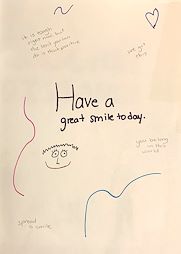 it is tough
right now but
the best you can
do is think positive
we got
this
Have a
great smile today.
you belong
in this
world
spread
a smile